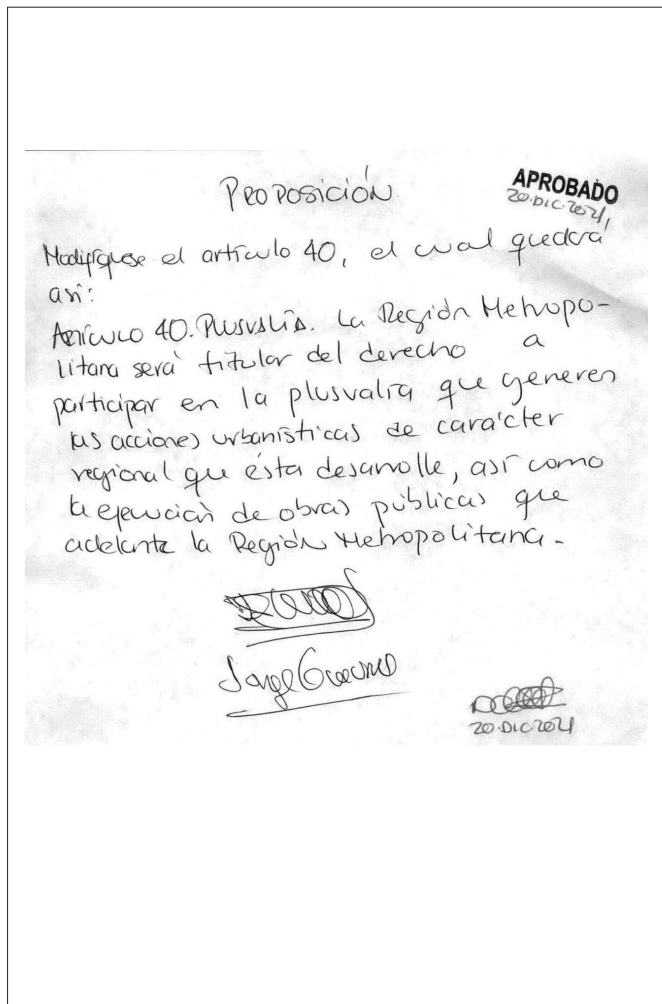 PROPOSICIÓN
APROBADO
20·DIC·2021
Modifíquese el artículo 40, el cual quedará
así:
ARTÍCULO 40. PLUSVALÍA. La Región Metropo-
litana será titular del derecho a
participar en la plusvalía que generen
las acciones urbanísticas de carácter
regional que ésta desarrolle, así como
la ejecución de obras públicas que
adelante la Región Metropolitana.
Jorge
20·DIC·2021